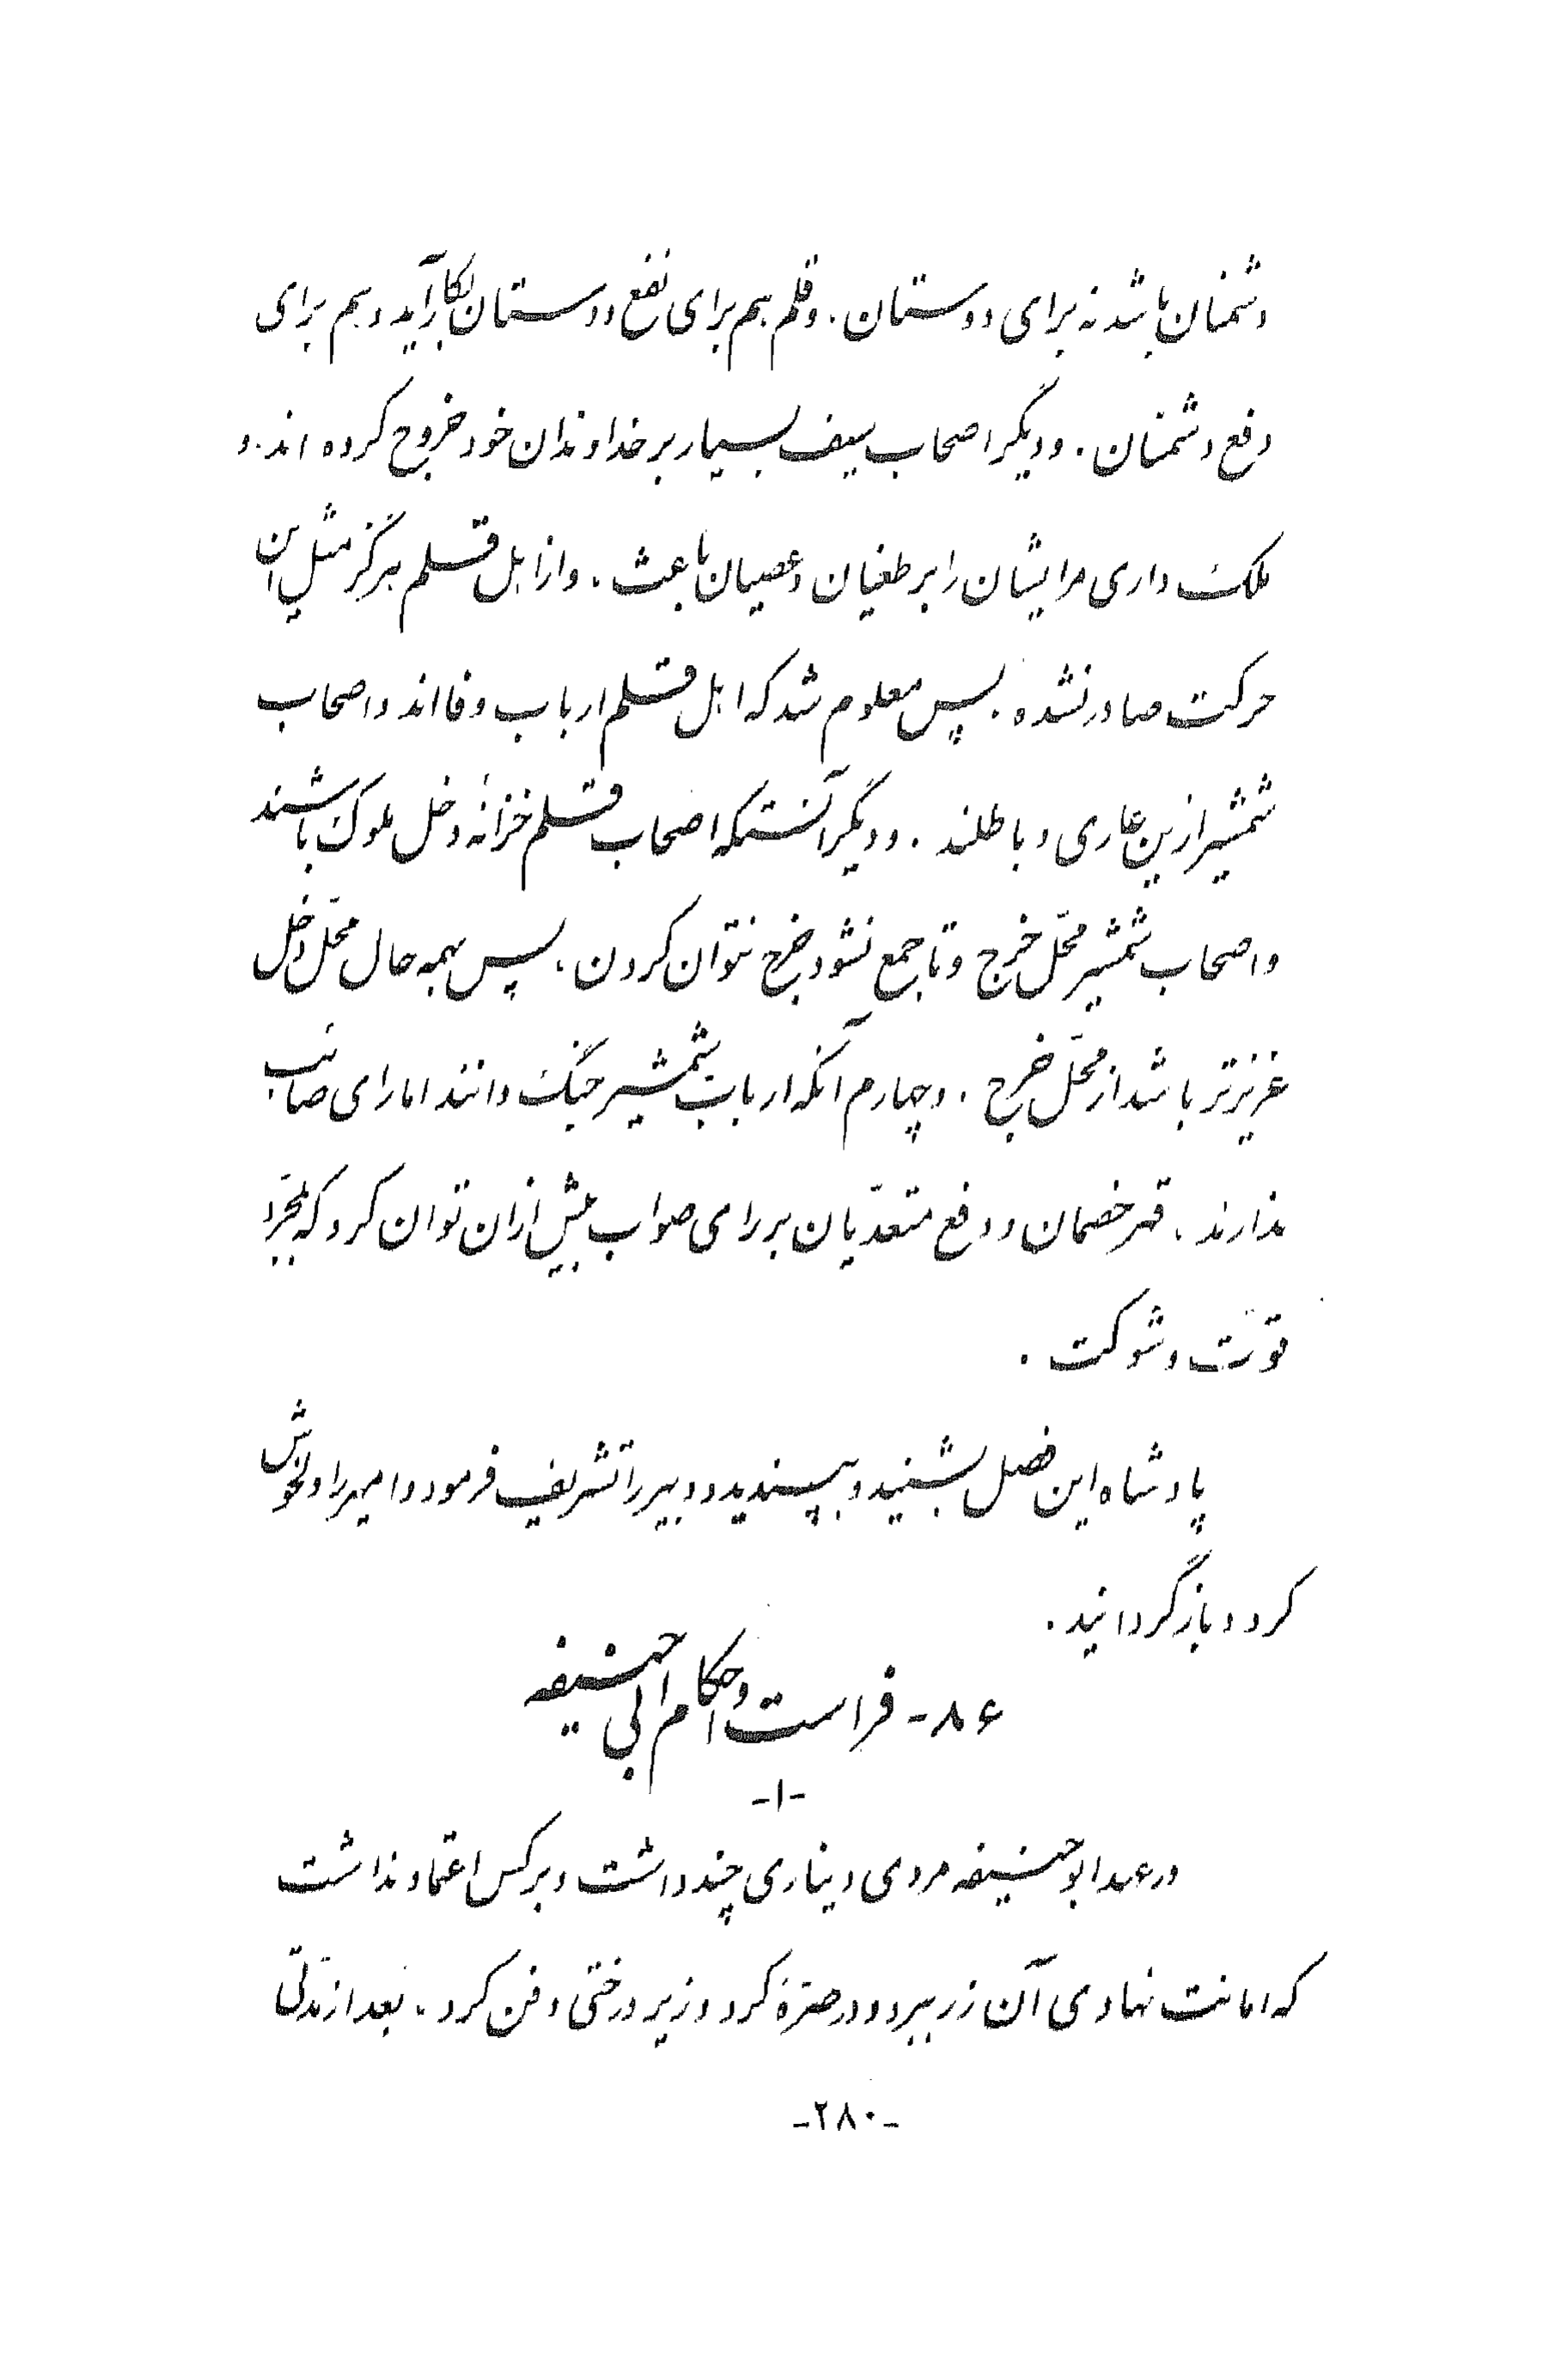 دشمنان باشد نه برای دوستان. و قلم هم برای نفع دوستان بکار آید و هم برای
دفع دشمنان. و دیگر اصحاب سیف بسیار بر خداوندان خود خروج کرده اند. و
ملک داری مر ایشان را بر طغیان و عصیان باعث. و از اهل قلم هرگز مثل این
حرکت صادر نشده. پس معلوم شد که اهل قلم ارباب وفااند و اصحاب
شمشیر ازین عاری و باطلند. و دیگر آنستکه اصحاب قلم خزانهٔ دخل ملوک باشند
و اصحاب شمشیر محلّ خرج و تا جمع نشود خرج نتوان کردن، پس بهمه حال محلّ دخل
عزیزتر باشد از محلّ خرج. و چهارم آنکه ارباب شمشیر جنگ دانند اما رای صائب
ندارند، قهر خصمان و دفع متعدّیان بر رای صواب بیش ازان توان کرد که بمجرّد
قوّت و شوکت.
پادشاه این فصل بشنید و بپسندید و دبیر را تشریف فرمود و امیر را دلخوش
کرد و بازگردانید.
۸۶- فراست و احکام ابی حنیفه
-۱-
در عهد ابوحنیفه مردی دیناری چند داشت و بر کس اعتماد نداشت
که امانت نهادی آن زر ببرد و در صرّهٔ کرد و زیر درختی دفن کرد، بعد از مدّتی
-۲۸۰-